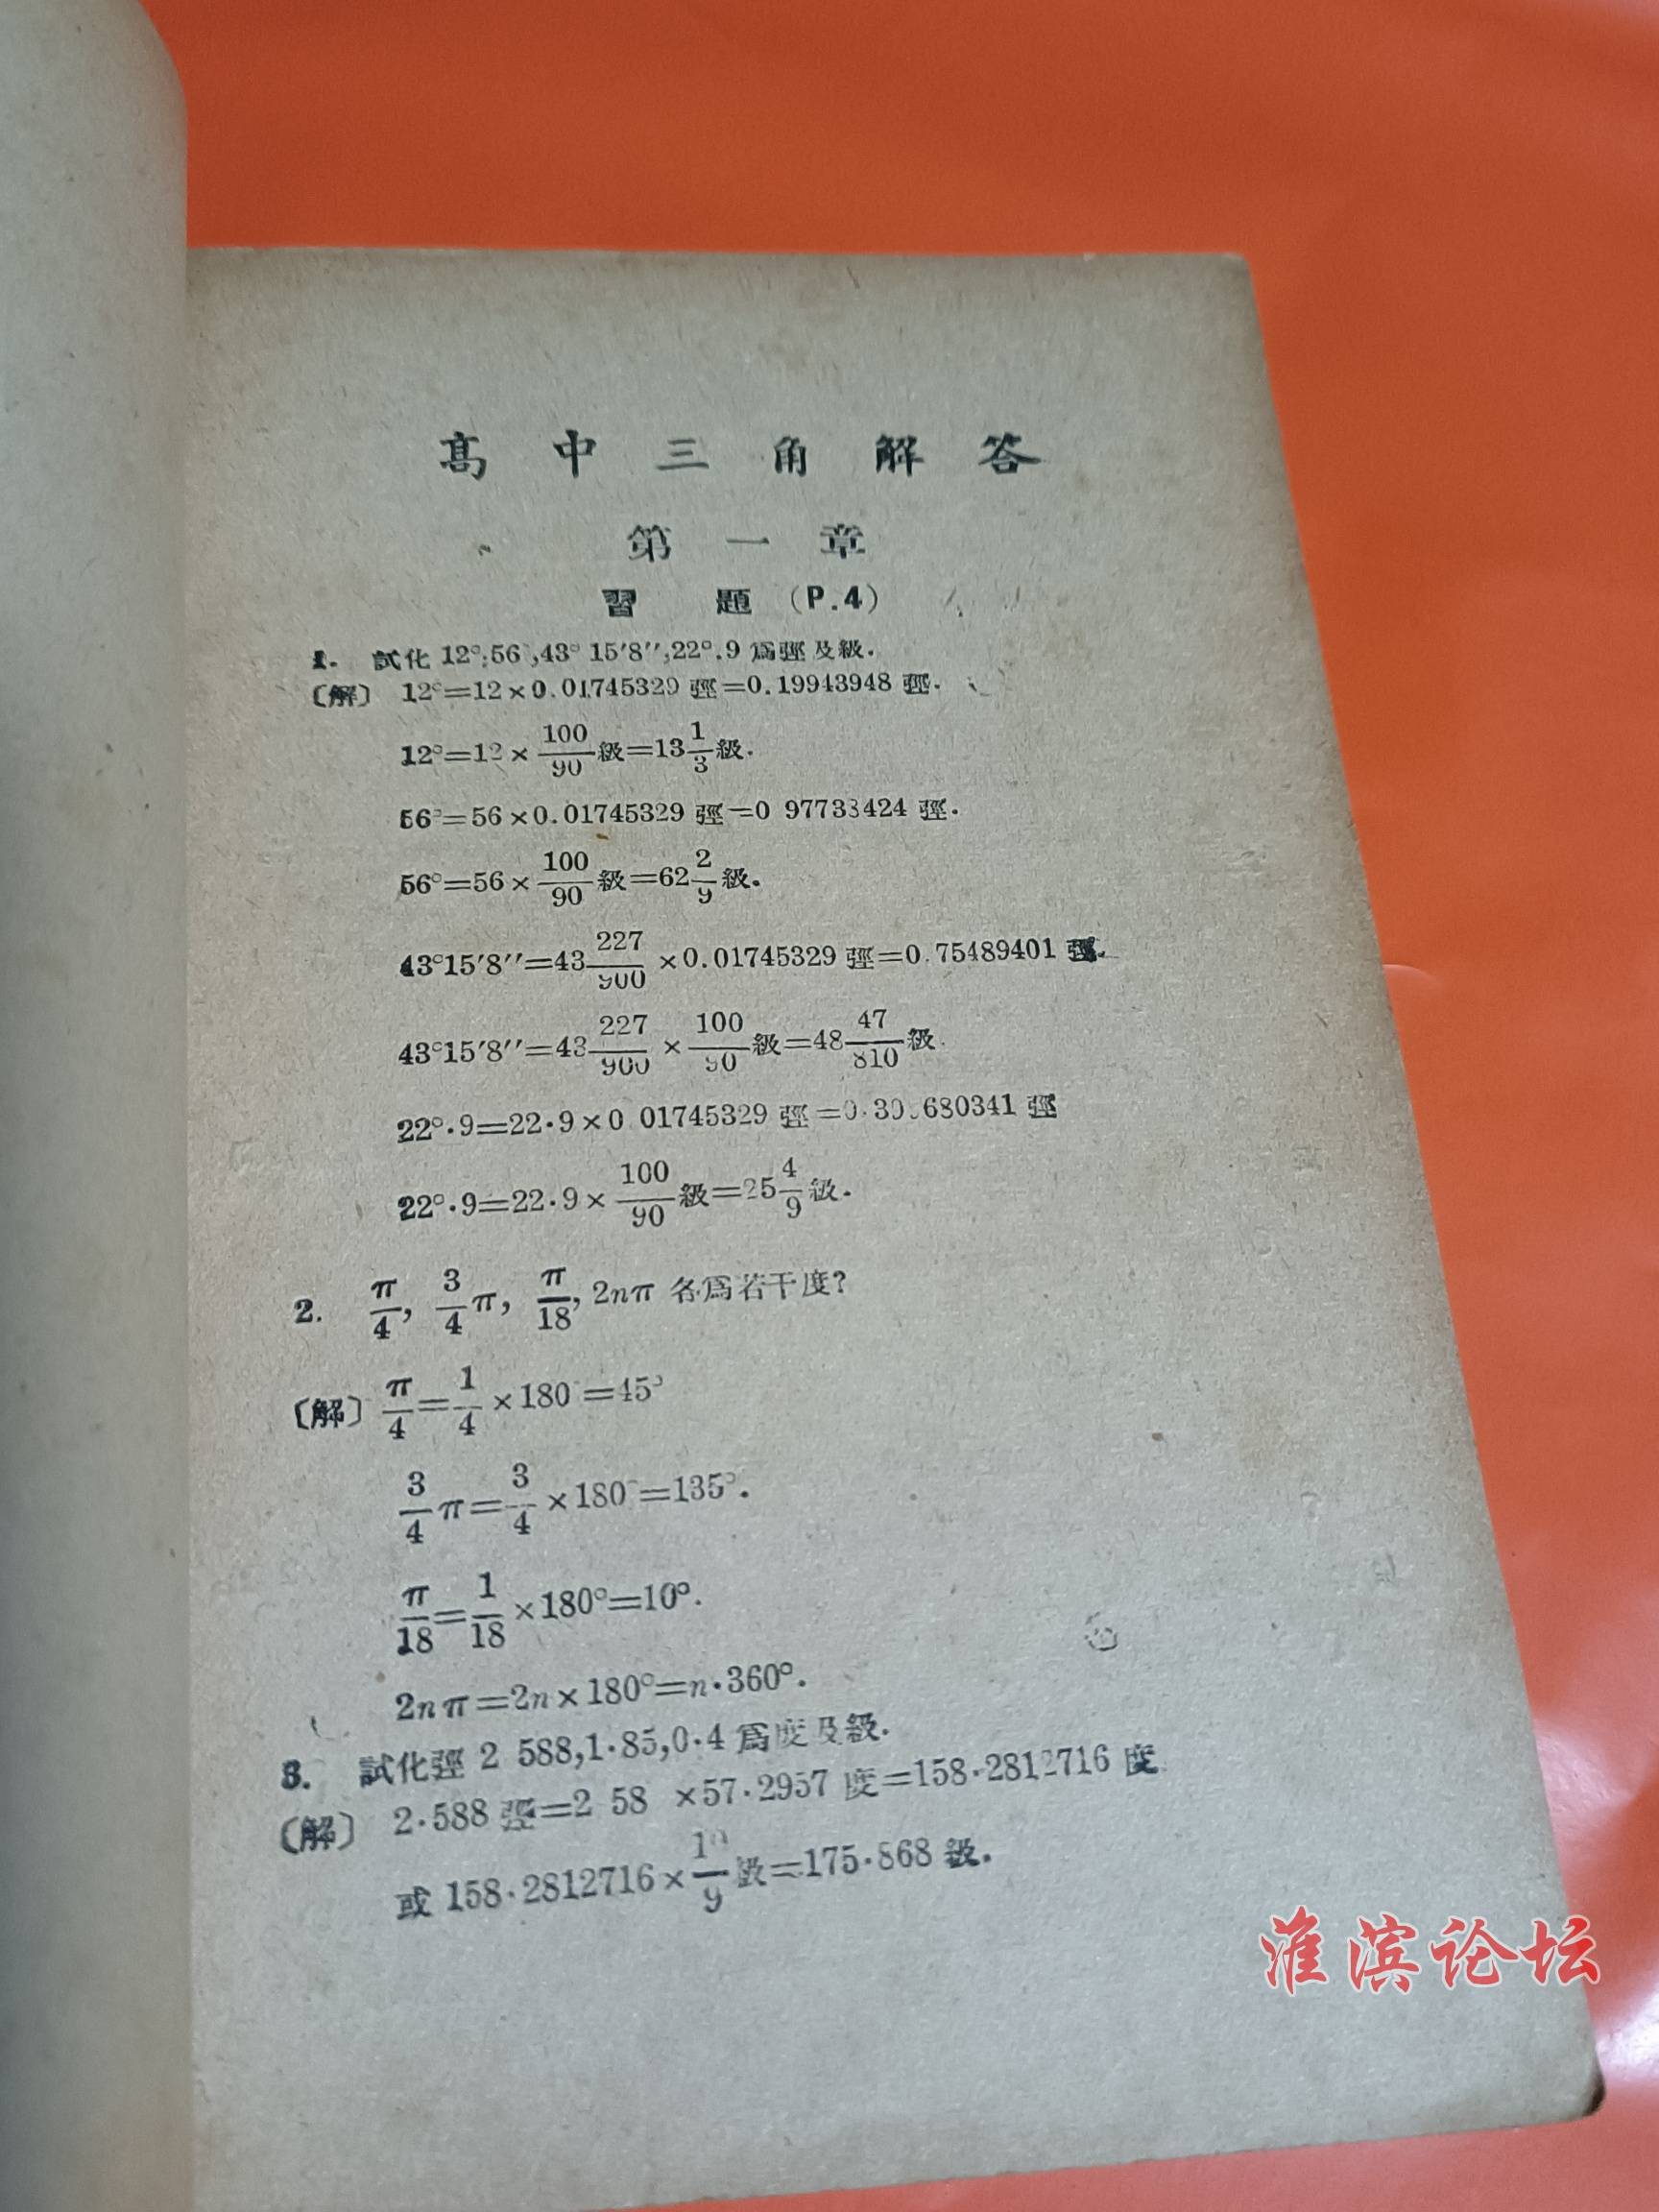 高中三角解答
第一章
習題 (P.4)
1. 試化 12°,56°,43° 15′8″,22°.9 爲弳及級.
〔解〕 12°=12×0.01745329 弳=0.19943948 弳.
12°=12×100/90級=13 1/3級.
56°=56×0.01745329 弳=0 97733424 弳.
56°=56×100/90級=62 2/9級.
43°15′8″=43 227/900×0.01745329 弳=0.75489401 弳.
43°15′8″=43 227/900×100/90級=48 47/810級.
22°·9=22·9×0 01745329 弳=0·39 680341 弳
22°·9=22·9×100/90級=25 4/9級.
2. π/4, 3/4π, π/18, 2nπ 各爲若干度?
〔解〕 π/4=1/4×180°=45°
3/4π=3/4×180°=135°.
π/18=1/18×180°=10°.
2nπ=2n×180°=n·360°.
3. 試化弳 2 588,1·85,0·4 爲度及級.
〔解〕 2·588 弳=2 58 ×57·2957 度=158·2812716 度
或 158·2812716×10/9級=175·868 級.
淮滨论坛